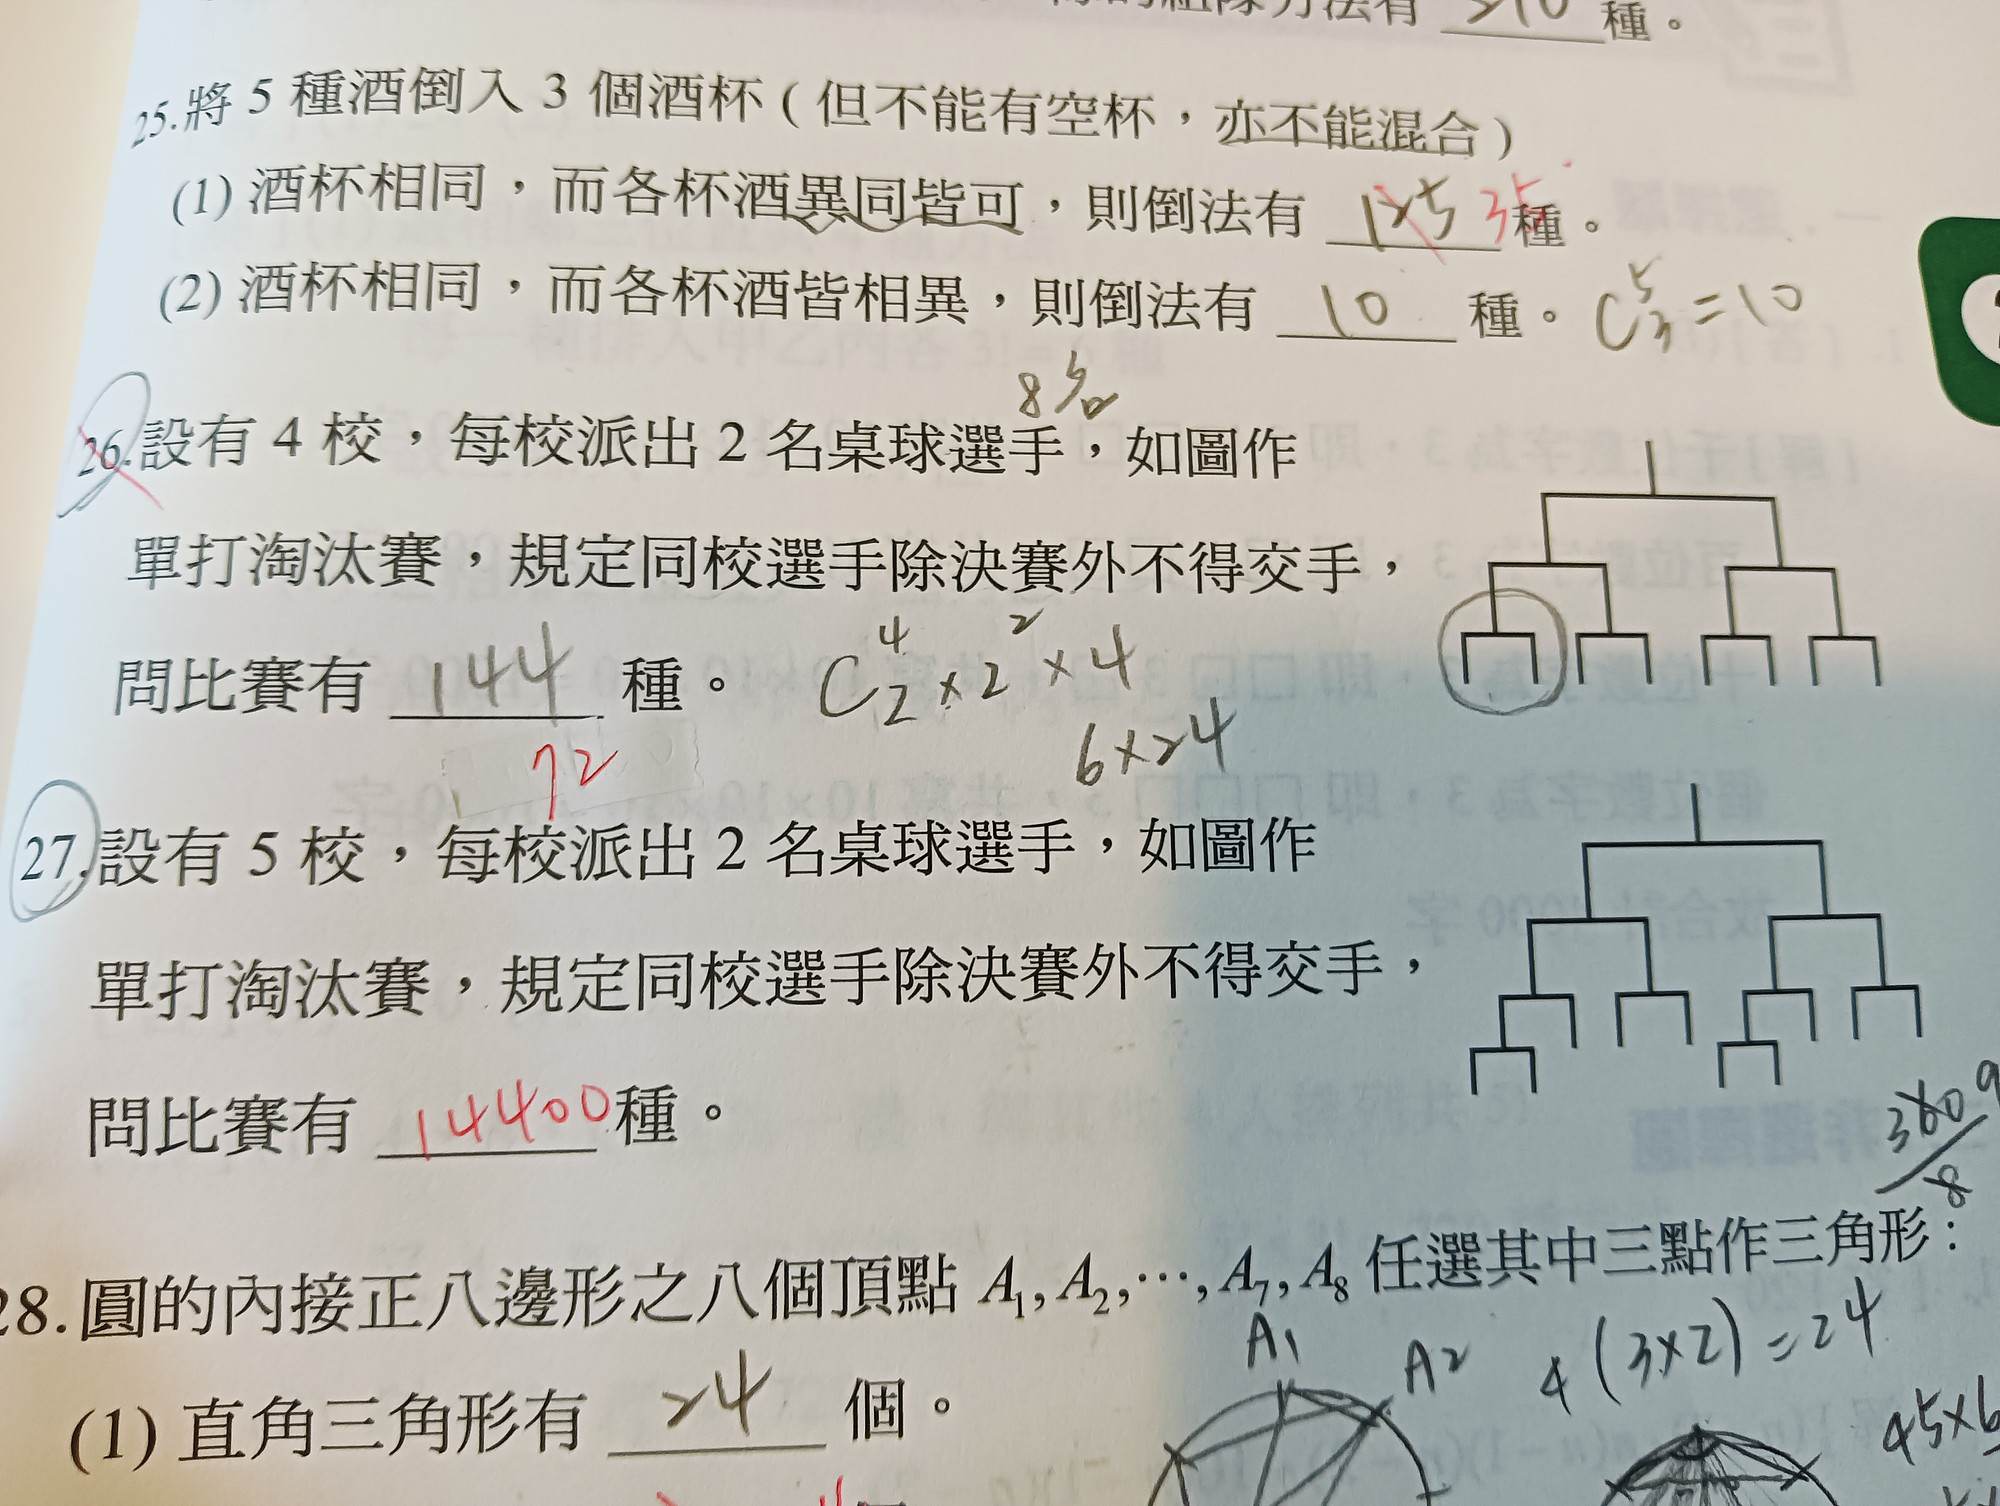 種。
25.將 5 種酒倒入 3 個酒杯 ( 但不能有空杯，亦不能混合 )
(1) 酒杯相同，而各杯酒異同皆可，則倒法有 125 35 種。
(2) 酒杯相同，而各杯酒皆相異，則倒法有 10 種。 C⁵₃=10
8名
26.設有 4 校，每校派出 2 名桌球選手，如圖作
單打淘汰賽，規定同校選手除決賽外不得交手，
問比賽有 144 種。 C⁴₂×2²×4
72 6×24
27.設有 5 校，每校派出 2 名桌球選手，如圖作
單打淘汰賽，規定同校選手除決賽外不得交手，
問比賽有 14400 種。
360
8
28.圓的內接正八邊形之八個頂點 A₁, A₂,⋯, A₇, A₈ 任選其中三點作三角形：
A1 A2 4(3×2)=24
(1) 直角三角形有 24 個。
45×6